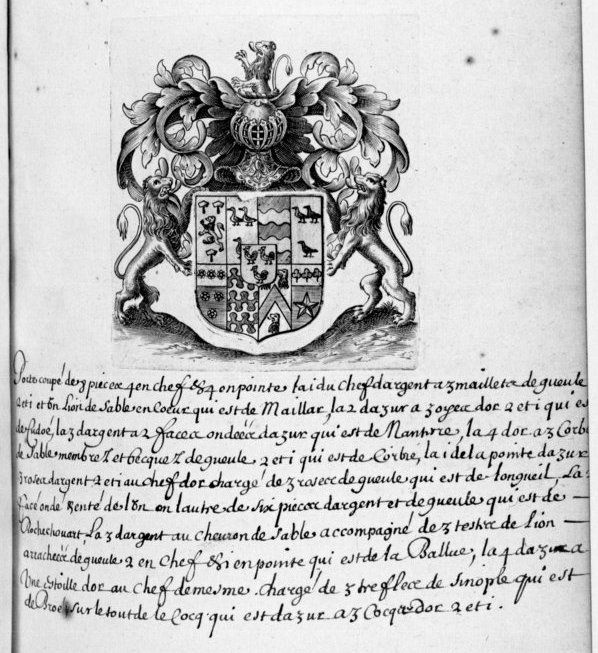 Porte coupé de 8 pieces 4 en chef & 4 en pointe la i du chef dargent a 3 mailletz de gueule
2 et i et un Lion de Sable en Coeur qui est de Maillar, la 2 dazur a 3 oyes dor 2 et i qui es
la 3 dargent a 2 faces ondées dazur qui est de Nanture, la 4 dor a 3 Corbe
de Sable membrez et becquez de gueule 2 et i qui est de Corbie, la i de la pointe dazur
3 roses dargent 2 et i au chef dor chargé de 3 roses de gueule qui est de Longueil, La
facé onde enté de lun en lautre de six pieces dargent et de gueule qui est de
Rochechouart. La 3 dargent au cheuron de Sable accompagné de 3 testes de Lion
arrachées de gueule 2 en chef & i en pointe qui est de la Ballue, la 4 dazur a
Une estoille dor au chef de mesme Chargé de 3 treffles de Sinople qui est
de Broe, sur le tout de le Cocq qui est dazur a 3 Cocqs dor 2 et i.